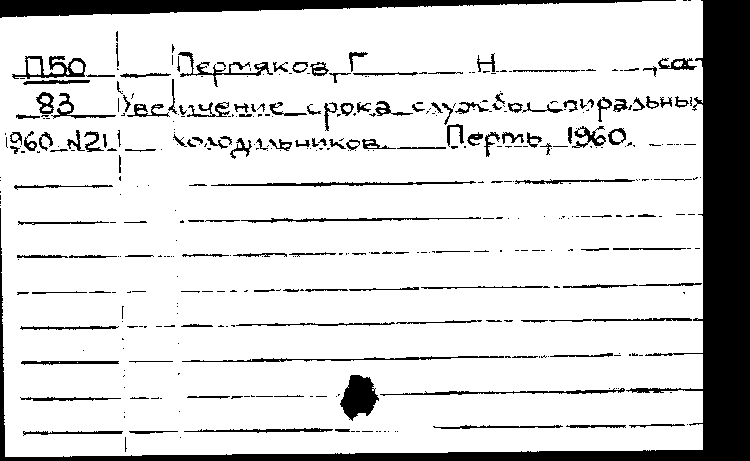 П50 Пермяков, Г Н , сост
83 Увеличение срока службы спиральных
1960 N21 холодильников. Пермь, 1960.